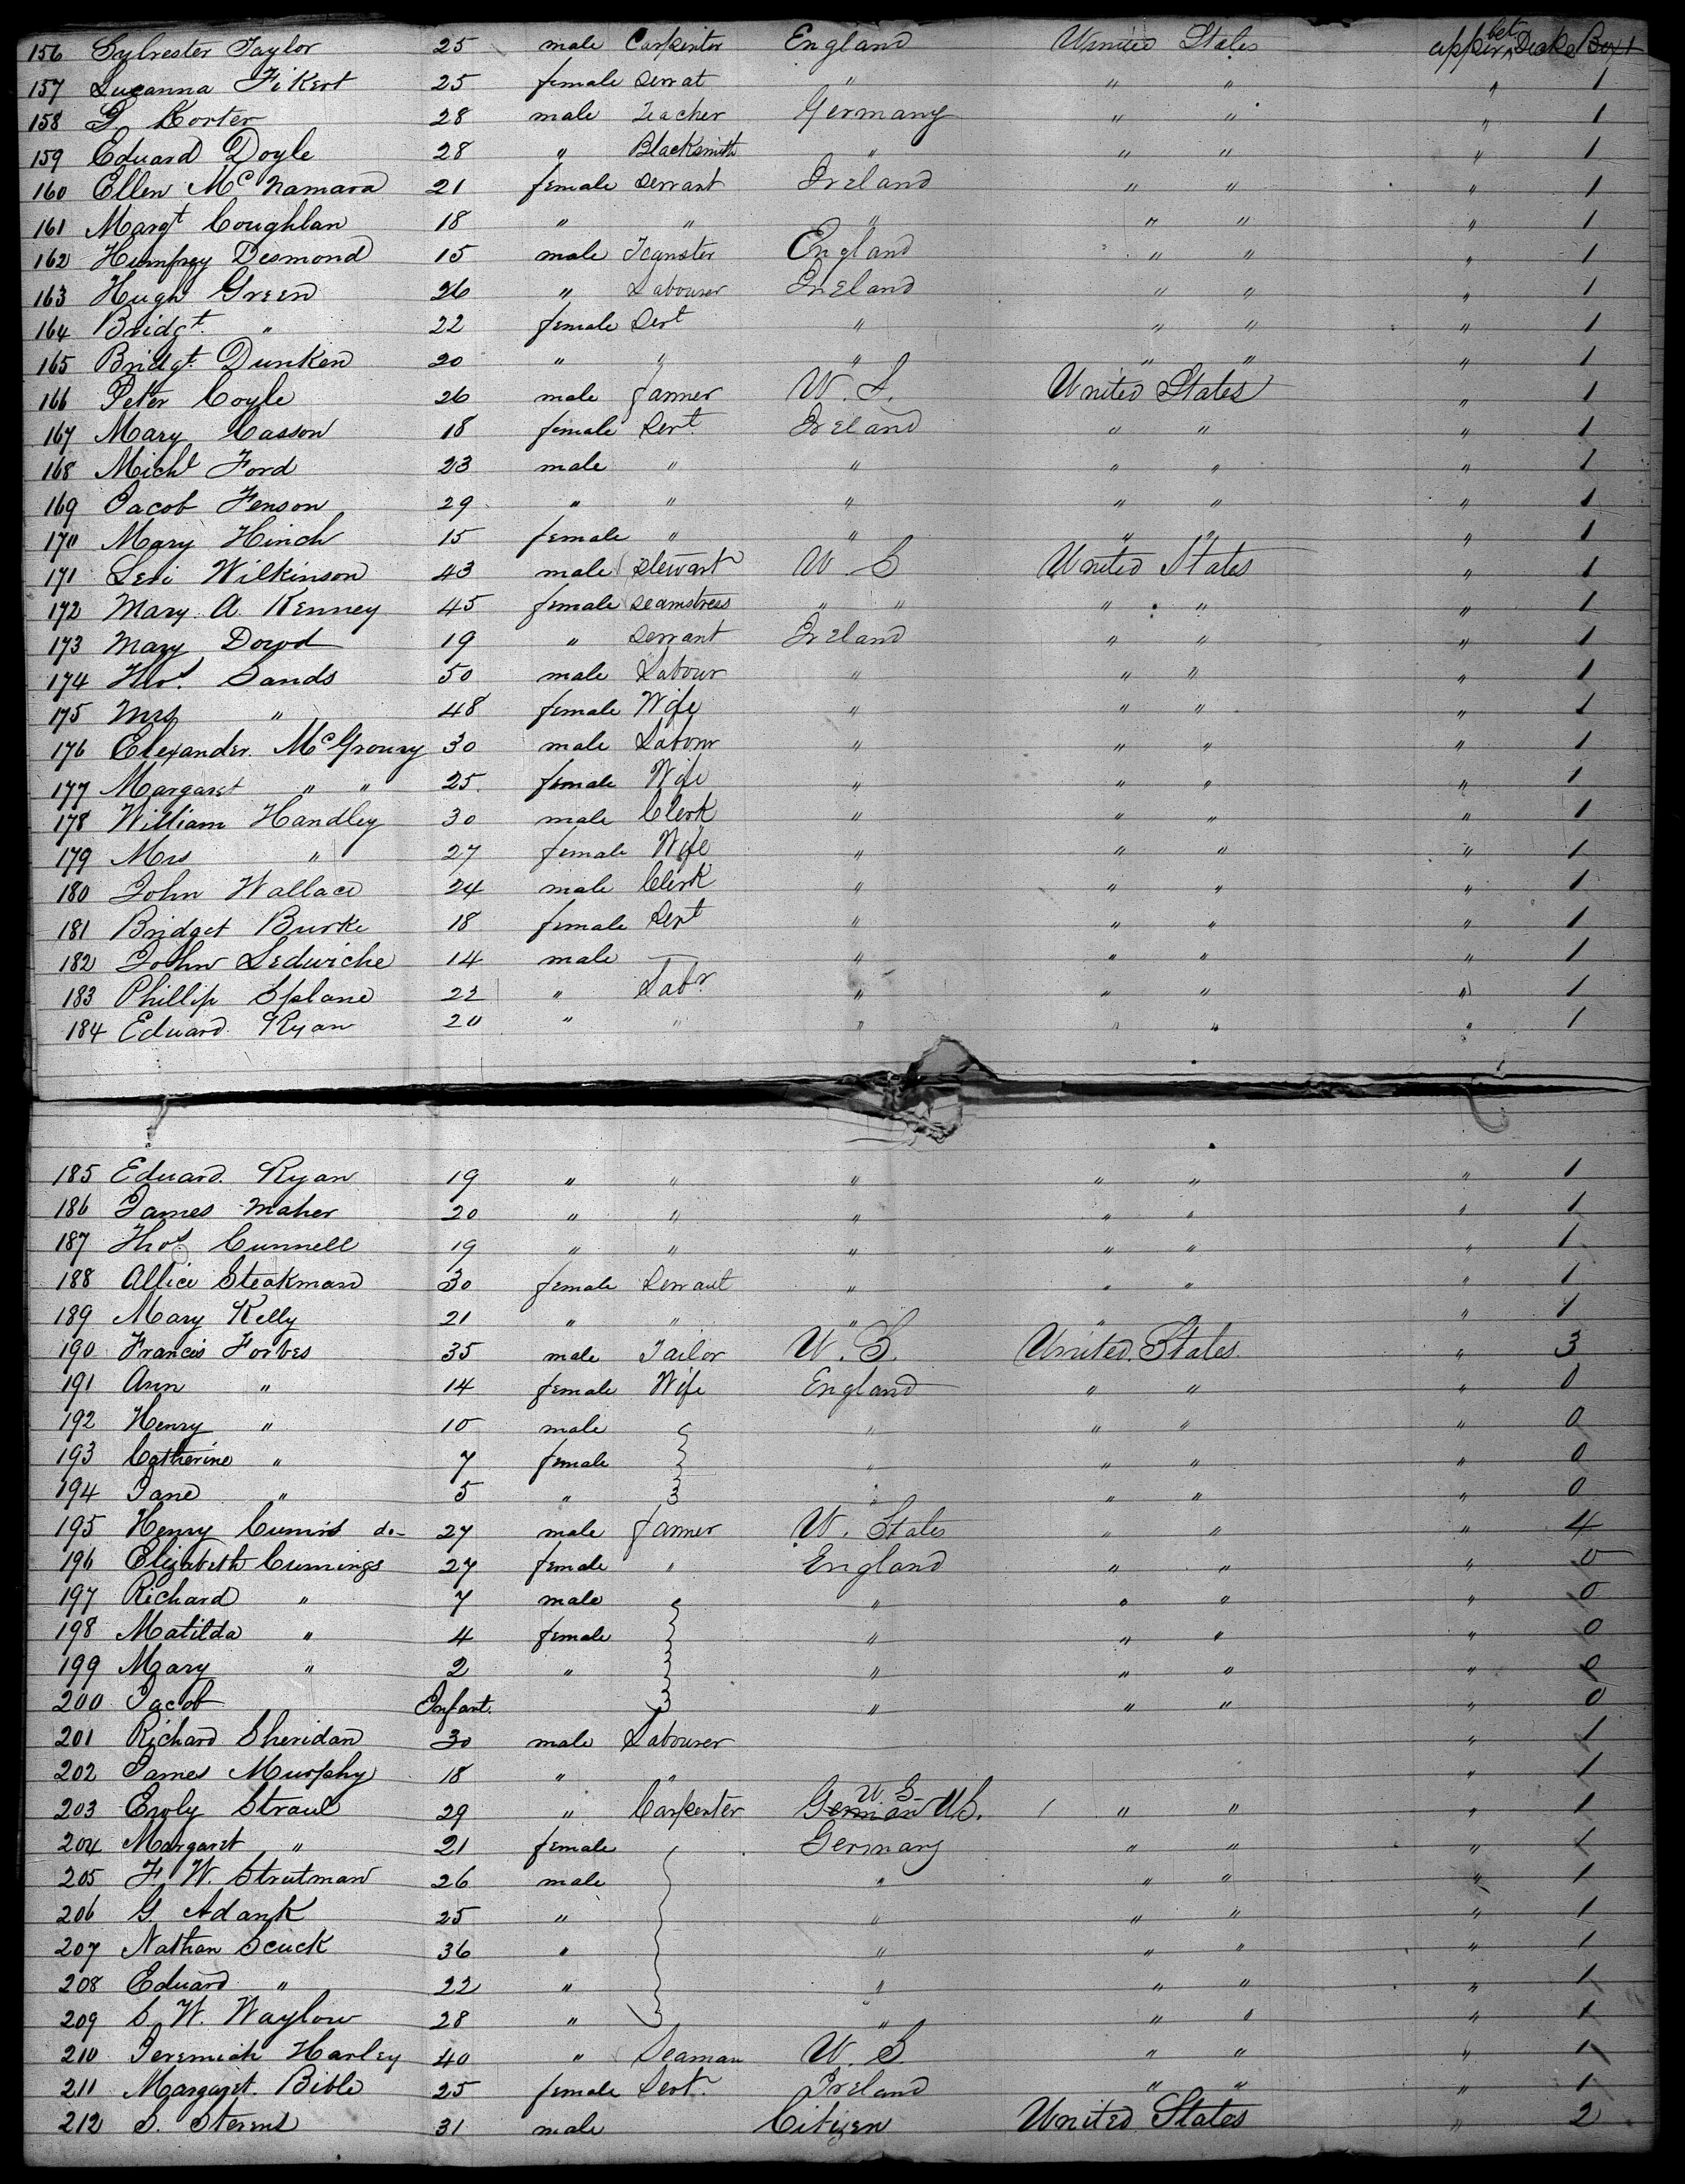 156 Sylvester Taylor 25 male Carpenter England United States upper bet Decke Box 1
157 Susanna Fikert 25 female Servat " " " " 1
158 G Korter 28 male Teacher Germany " " " 1
159 Eduard Doyle 28 " Blacksmith " " " " 1
160 Ellen McNamara 21 female Servant Ireland " " " 1
161 Margt Coughlan 18 " " " " " " 1
162 Humfrey Desmond 15 male England " " " 1
163 Hugh Green 26 " Labourer Ireland " " " 1
164 Bridgt. " 22 female Sert " " " " 1
165 Bridgt. Dunken 20 " " " " " " 1
166 Peter Coyle 26 male farmer U.S. United States " 1
167 Mary Casson 18 female Sert Ireland " " " 1
168 Michl Ford 23 male " " " " " 1
169 Jacob Fenson 29 " " " " " " 1
170 Mary Hinch 15 female " " " " " 1
171 Levi Wilkinson 43 male Stewart U S United States " 1
172 Mary A Kenney 45 female Seamstress " " " " " 1
173 Mary Dowd 19 " Servant Ireland " " " 1
174 Thos. Sands 50 male Labour " " " " 1
175 Mrs " 48 female Wife " " " " 1
176 Elexander McGroury 30 male Labour " " " " 1
177 Margaret " " 25 female Wife " " " " 1
178 William Handley 30 male Clerk " " " " 1
179 Mrs " 27 female Wife " " " " 1
180 John Wallace 24 male Clerk " " " " 1
181 Bridget Burke 18 female Sert " " " " 1
182 John Ledwiche 14 male — " " " " 1
183 Phillip Splane 22 " Labr. " " " " 1
184 Eduard Ryan 20 " " " " " " 1
185 Eduard Ryan 19 " " " " " " 1
186 James Maher 20 " " " " " " 1
187 Thos. Cunnell 19 " " " " " " 1
188 Allice Steakman 30 female Servant " " " " 1
189 Mary Kelly 21 " " " " " 1
190 Francis Forbes 35 male Tailor U.S. United States " 3
191 Ann " 14 female Wife England " " " 0
192 Henry " 10 male " " " " 0
193 Catherine " 7 female " " " " 0
194 Jane " 5 " " " " " 0
195 Henry do- 27 male farmer U. States " " " 4
196 Elizabeth Cumings 27 female " England " " " 0
197 Richard " 7 male " " " " 0
198 Matilda " 4 female " " " " 0
199 Mary " 2 " " " " " 0
200 Jacob Infant. " " " " 0
201 Richard Sheridan 30 male Labourer " 1
202 James Murphy 18 " " " 1
203 Straub 29 " Carpenter German U.S. U.S. " " " 1
204 Margaret " 21 female Germany " " " 1
205 F. W. Strutman 26 male " " " " 1
206 G. Adank 25 " " " " " 1
207 Nathan Scuck 36 " " " " " 1
208 Eduard " 22 " " " " " 1
209 S. W. Waylow 28 " " " " " 1
210 Jeremiah Harley 40 " Seaman U.S. " " " 1
211 Margaret Bible 25 female Sert. Ireland " " " 1
212 S. Stevens 31 male Citizen United States " 2